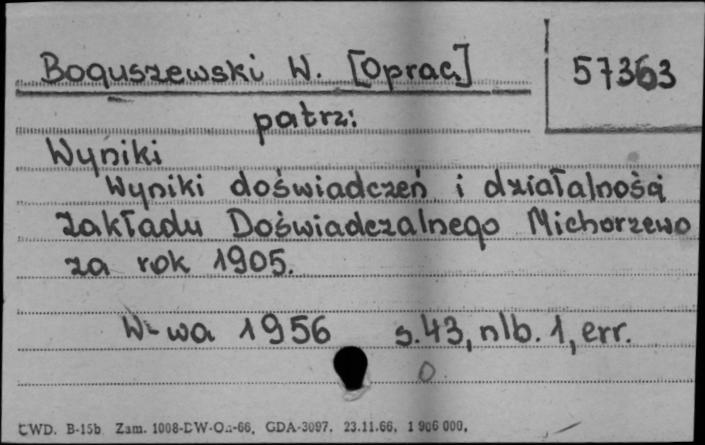 Boguszewski W. [Oprac.] 57363
patrz:
Wyniki
Wyniki doświadczeń i działalności
Zakładu Doświadczalnego Michorzewo
za rok 1905.
W-wa 1956 s.43, nlb. 1, err.
CWD. B-15b Zam. 1008-DW-Oa-66, GDA-3097, 23.11.66, 1 906 000,